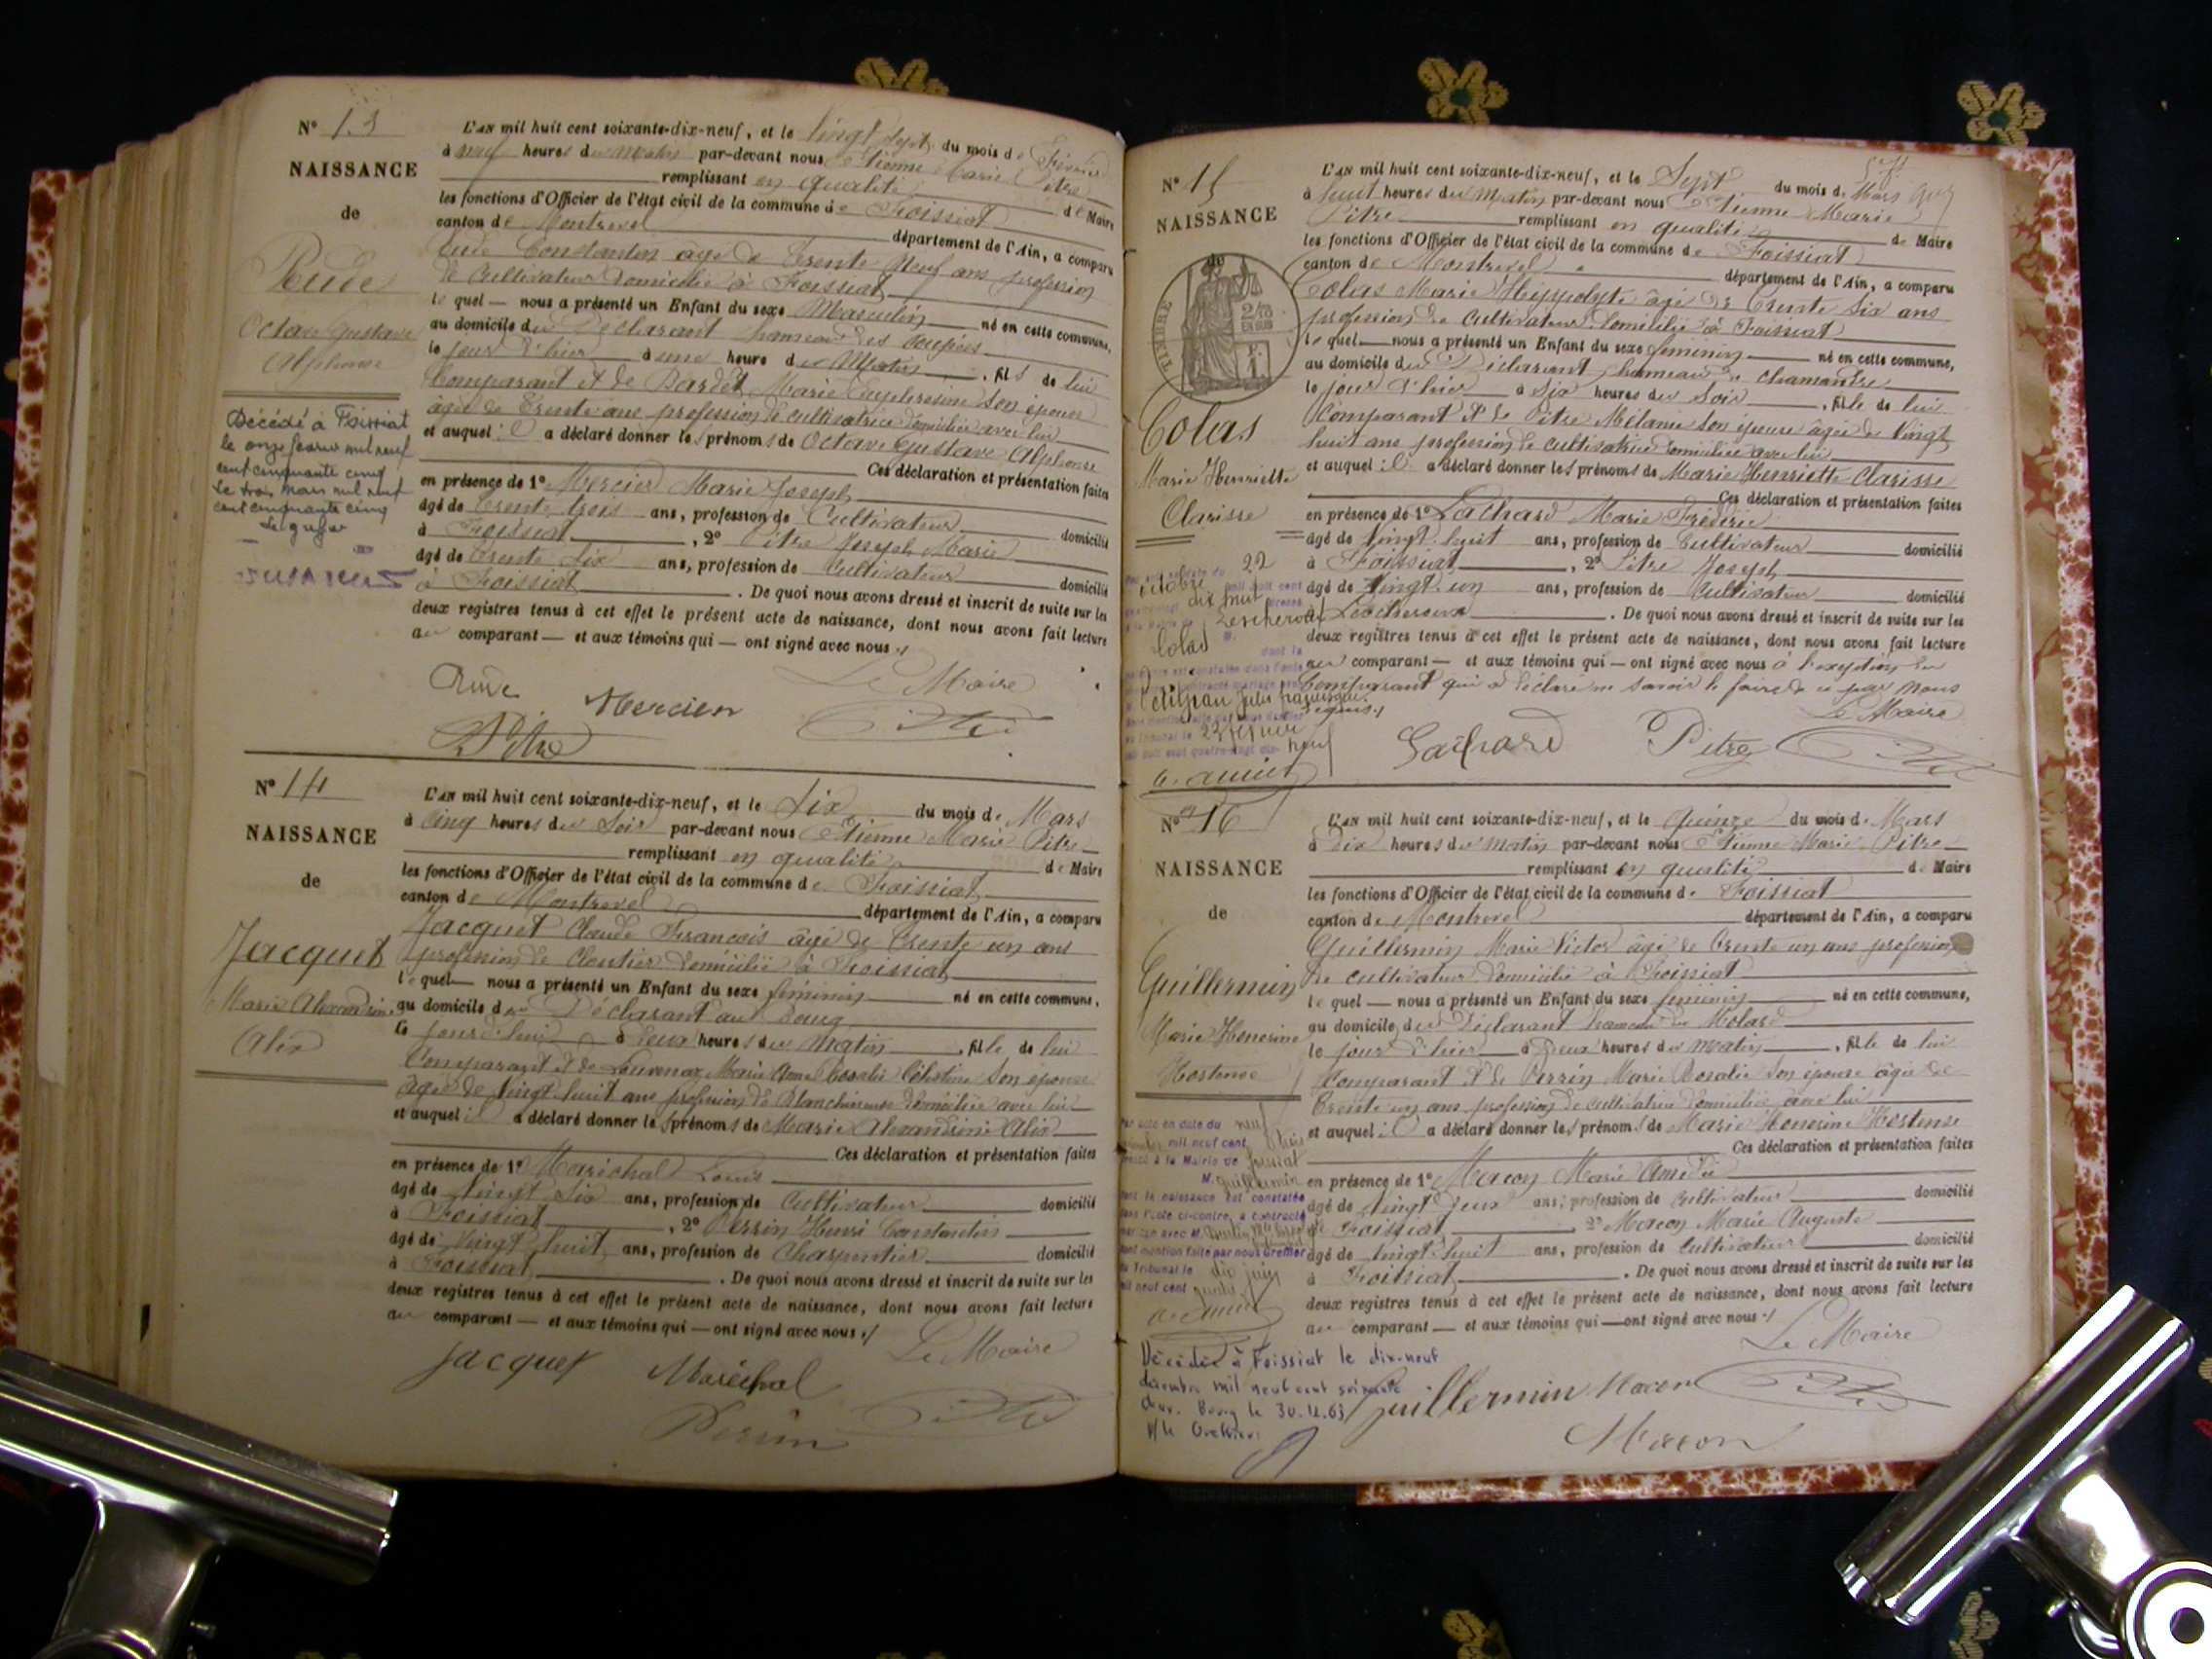 N° 13
NAISSANCE
de
Rude
Octave Gustave
Alphonse
Décédé à Foissiat
le onze février mil neuf
cent cinquante cinq
Le trois mars mil neuf
cent cinquante cinq
L'AN mil huit cent soixante-dix-neuf, et le vingt sept du mois de Février
à neuf heures du matin par-devant nous Etienne Marie Pitre
remplissant en qualité de Maire
les fonctions d'Officier de l'état civil de la commune de Foissiat
canton de Montrevel département de l'Ain, a comparu
Rude Constantin âgé de trente neuf ans profession
de cultivateur domicilié à Foissiat
lequel — nous a présenté un Enfant du sexe Masculin né en cette commune,
au domicile du Déclarant hameau des
le jour d'hier à une heure du Matin, fils de lui
Comparant et de Bardet Marie son épouse
âgée de trente ans profession de cultivatrice domiciliée avec lui
et auquel il a déclaré donner les prénoms de Octave Gustave Alphonse
Ces déclaration et présentation faites
en présence de 1° Mercier Marie Joseph
âgé de trente trois ans, profession de Cultivateur domicilié
à Foissiat, 2° Pitre Joseph Marie
âgé de trente six ans, profession de Cultivateur domicilié
à Foissiat. De quoi nous avons dressé et inscrit de suite sur les
deux registres tenus à cet effet le présent acte de naissance, dont nous avons fait lecture
au comparant — et aux témoins qui — ont signé avec nous
Rude Mercier Le Maire
Pitre Pitre
N° 14
NAISSANCE
de
Jacquet
Marie Alexandrine
Alix
L'AN mil huit cent soixante-dix-neuf, et le six du mois de Mars
à cinq heures du Soir par-devant nous Etienne Marie Pitre
remplissant en qualité de Maire
les fonctions d'Officier de l'état civil de la commune de Foissiat
canton de Montrevel département de l'Ain, a comparu
Jacquet Claude François âgé de trente un ans
profession de Cloutier domicilié à Foissiat
lequel — nous a présenté un Enfant du sexe féminin né en cette commune,
au domicile du Déclarant au Bourg
le jour d'hui à deux heures du Matin, fille de lui
Comparant et de Louvenaz Marie Anne Rosalie Célestine son épouse
âgée de vingt huit ans profession de Blanchisseuse domiciliée avec lui
et auquel il a déclaré donner les prénoms de Marie Alexandrine Alix
Ces déclaration et présentation faites
en présence de 1° Maréchal Louis
âgé de vingt six ans, profession de Cultivateur domicilié
à Foissiat, 2° Perrin Henri Constantin
âgé de vingt huit ans, profession de Charpentier domicilié
à Foissiat. De quoi nous avons dressé et inscrit de suite sur les
deux registres tenus à cet effet le présent acte de naissance, dont nous avons fait lecture
au comparant — et aux témoins qui — ont signé avec nous
Jacquet Maréchal Le Maire
Perrin Pitre
N° 15
NAISSANCE
de
TIMBRE
Colas
Marie Henriette
Clarisse
22
octobre mil huit cent
dix neuf
Lescheroux
Colas
dont la
Petitjean Jules
neuf
L'AN mil huit cent soixante-dix-neuf, et le Sept du mois de Mars
à huit heures du Matin par-devant nous Etienne Marie
Pitre remplissant en qualité de Maire
les fonctions d'Officier de l'état civil de la commune de Foissiat
canton de Montrevel département de l'Ain, a comparu
Colas Marie Hippolyte âgé de trente six ans
profession de Cultivateur domicilié à Foissiat
lequel — nous a présenté un Enfant du sexe féminin né en cette commune,
au domicile du Déclarant hameau de Chamandre
le jour d'hier à six heures du Soir, fille de lui
Comparant et de Pitre Mélanie son épouse âgée de vingt
huit ans profession de cultivatrice domiciliée avec lui
et auquel il a déclaré donner les prénoms de Marie Henriette Clarisse
Ces déclaration et présentation faites
en présence de 1° Lachard Marie Frédéric
âgé de vingt huit ans, profession de Cultivateur domicilié
à Foissiat, 2° Pitre Joseph
âgé de vingt un ans, profession de Cultivateur domicilié
à Lescheroux. De quoi nous avons dressé et inscrit de suite sur les
deux registres tenus à cet effet le présent acte de naissance, dont nous avons fait lecture
au comparant — et aux témoins qui — ont signé avec nous à l'exception du
Comparant qui a déclaré ne savoir le faire de ce par nous
requis
Le Maire
Lachard Pitre Pitre
N° 16
NAISSANCE
de
Guillermin
Marie Honorine
Hortense
Par acte en date du neuf
mil neuf cent
à la Mairie de Foissiat
M. Guillermin
dont la naissance est constatée
dans l'acte ci-contre, a contracté
mariage avec M.
dont mention faite par nous Greffier
du Tribunal le dix juin
mil neuf cent
Décédée à Foissiat le dix-neuf
décembre mil neuf cent soixante
deux. Bourg le
P/le Greffier:
L'AN mil huit cent soixante-dix-neuf, et le quinze du mois de Mars
à dix heures du matin par-devant nous Etienne Marie Pitre
remplissant en qualité de Maire
les fonctions d'Officier de l'état civil de la commune de Foissiat
canton de Montrevel département de l'Ain, a comparu
Guillermin Marie Victor âgé de trente un ans profession
de cultivateur domicilié à Foissiat
lequel — nous a présenté un Enfant du sexe féminin né en cette commune,
au domicile du Déclarant hameau du Molard
le jour d'hier à deux heures du matin, fille de lui
Comparant et de Perrin Marie Rosalie son épouse âgée de
trente un ans profession de cultivatrice domiciliée avec lui
et auquel il a déclaré donner les prénoms de Marie Honorine Hortense
Ces déclaration et présentation faites
en présence de 1° Macon Marie Amédée
âgé de vingt deux ans, profession de Cultivateur domicilié
à Foissiat 2° Macon Marie Auguste
âgé de vingt huit ans, profession de Cultivateur domicilié
à Foissiat. De quoi nous avons dressé et inscrit de suite sur les
deux registres tenus à cet effet le présent acte de naissance, dont nous avons fait lecture
au comparant — et aux témoins qui — ont signé avec nous
Le Maire
Guillermin Macon Pitre
Macon